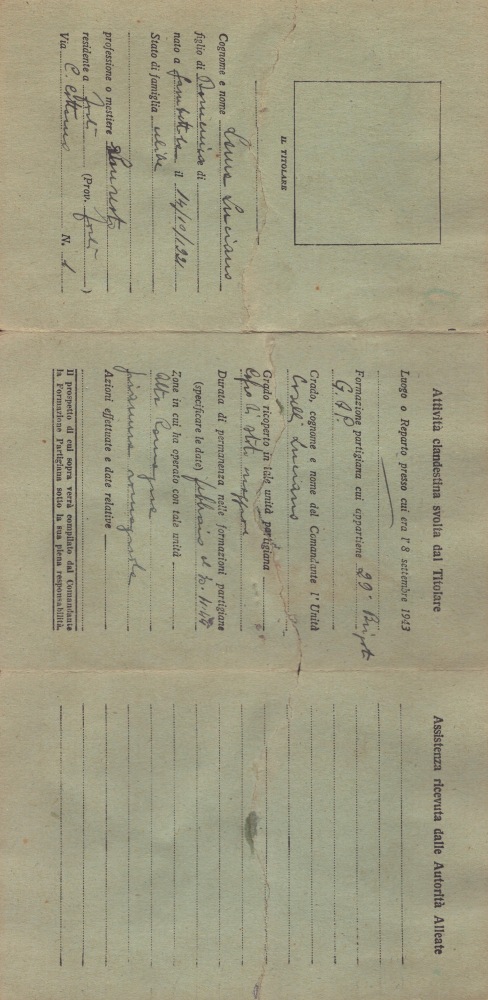 IL TITOLARE
Cognome e nome Lama Luciano
figlio di Domenico di
nato a Gambettola il 14/10/1921
Stato di famiglia celibe
professione o mestiere
residente a Forlì (Prov. Forlì )
Via N. 1
Attività clandestina svolta dal Titolare
Luogo o Reparto presso cui era l' 8 settembre 1943
Formazione partigiana cui appartiene 29ª Brigata
G.A.P.
Grado, cognome e nome del Comandante l' Unità
Luciano
Grado ricoperto in tale unità partigiana
Capo di stato maggiore
Durata di permanenza nelle formazioni partigiane
(specificare le date) febbraio al 10.11.44
Zone in cui ha operato con tale unità
Alta Romagna
pianura romagnola
Azioni effettuate e date relative
Il prospetto di cui sopra verrà compilato dal Comandante
la Formazione Partigiana sotto la sua piena responsabilità.
Assistenza ricevuta dalle Autorità Alleate